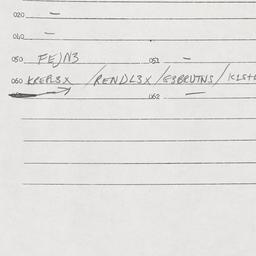 020 –
040 –
050 FEJN3 051 –
060 KREPL3X /RENDL3X /E3BRUTNS /KLS+
062 –